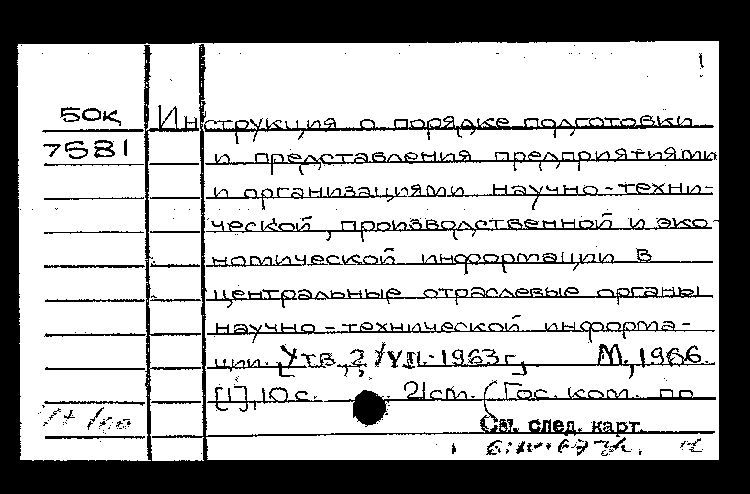 50к Инструкция о порядке подготовки
7581 и представления предприятиями
и организациями научно-техни-
ческой, производственной и эко-
номической информации в
центральные отраслевые органы
научно-технической информа-
ции. [Утв. 2/VII-1963г.] М., 1966.
[1], 10 с. 21 см. (Гос. ком. по
См. след. карт.